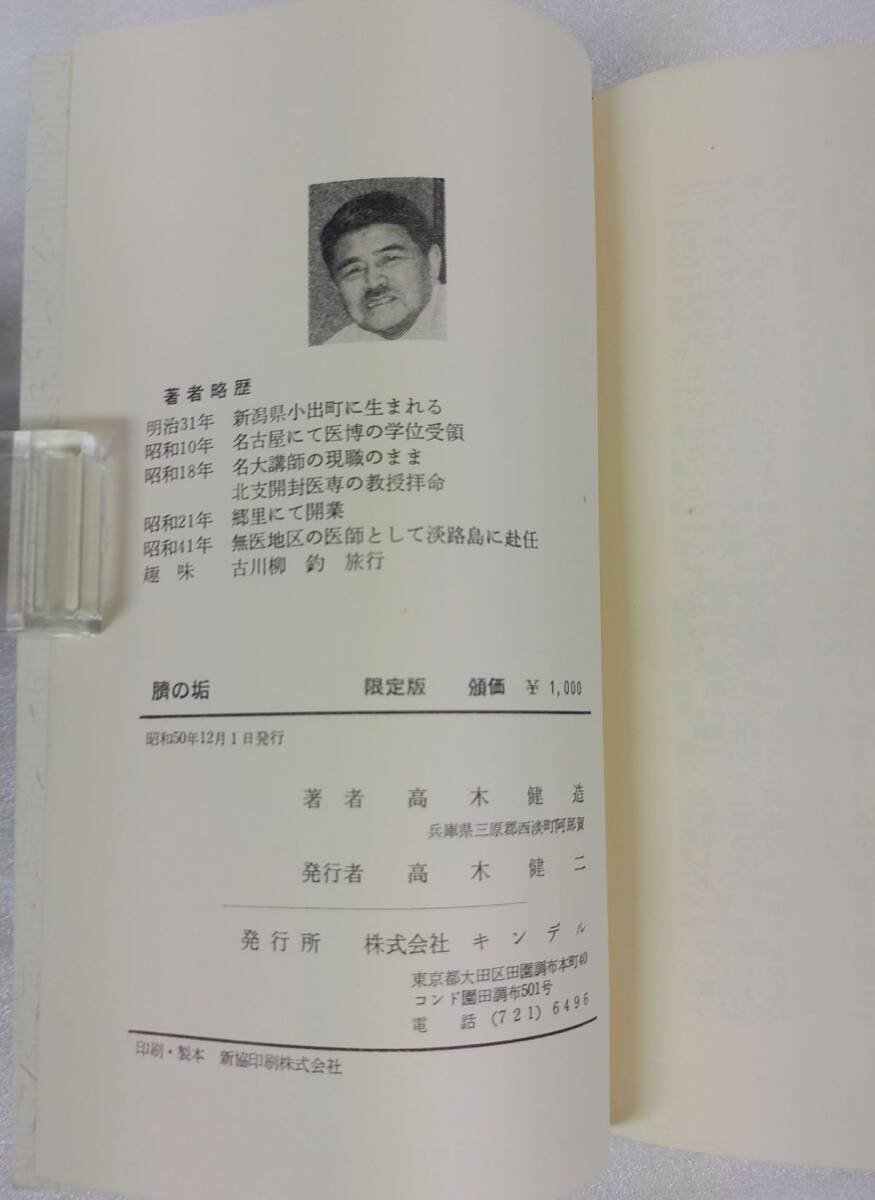 著者略歴
明治31年 新潟県小出町に生まれる
昭和10年 名古屋にて医博の学位受領
昭和18年 名大講師の現職のまま
北支開封医専の教授拝命
昭和21年 郷里にて開業
昭和41年 無医地区の医師として淡路島に赴任
趣味 古川柳 釣 旅行
臍の垢 限定版 頒価 ¥1,000
昭和50年12月1日発行
著者 高木健造
兵庫県三原郡西淡町阿那賀
発行者 高木健二
発行所 株式会社 キンデル
東京都大田区田園調布本町40
コンド園田調布501号
電話 (721) 6496
印刷・製本 新協印刷株式会社